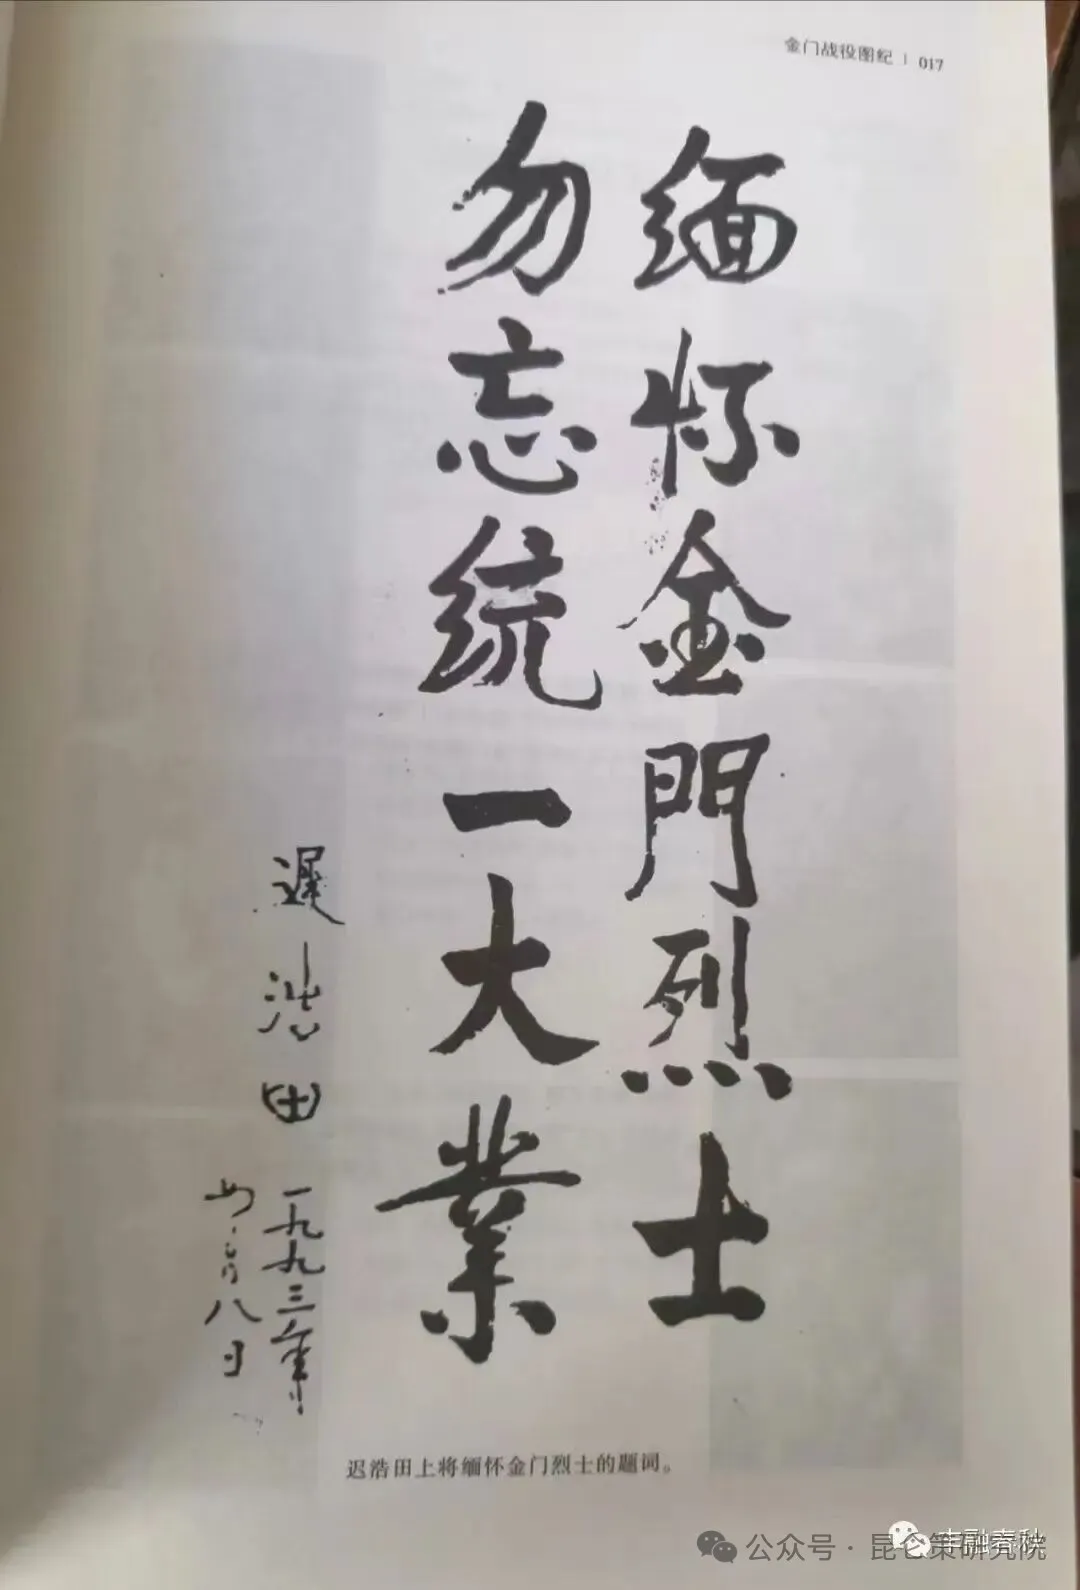 金门战役图纪 | 017
缅怀金門烈士
勿忘统一大業
遲浩田
一九九三年
八日
迟浩田上将缅怀金门烈士的题词。
公众号·昆仑策研究院